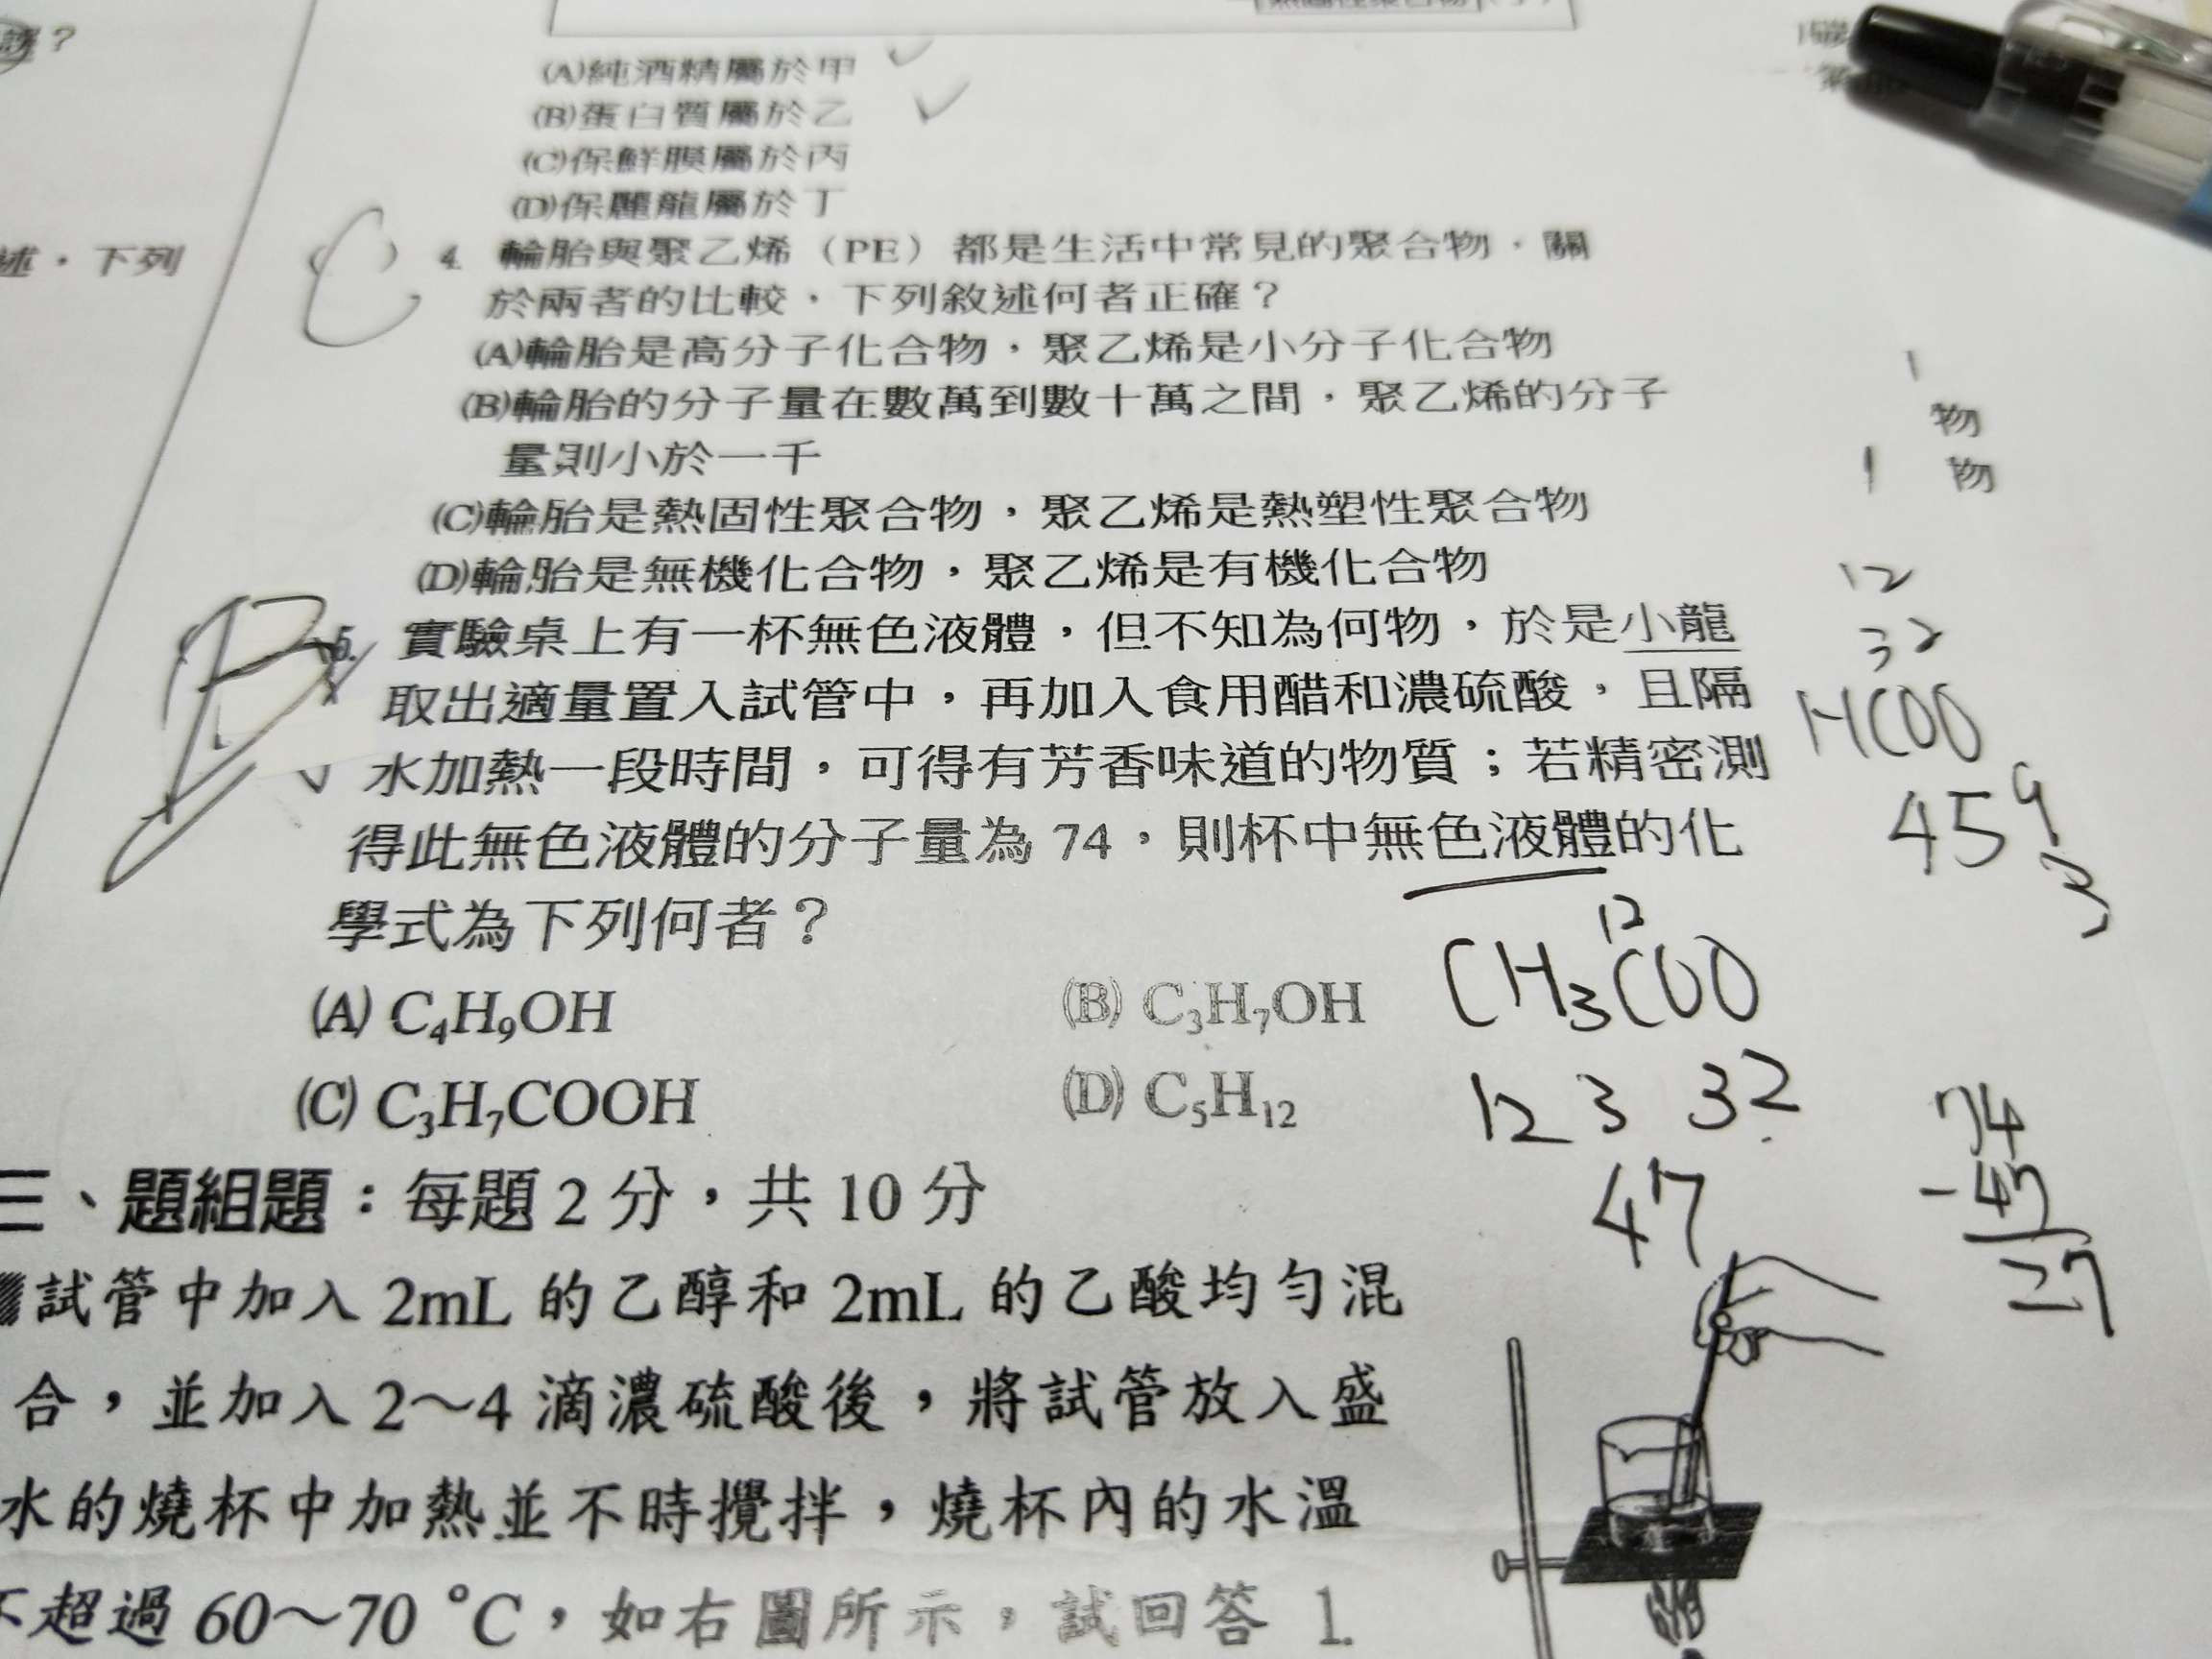 (A)純酒精屬於甲
(B)蛋白質屬於乙
(C)保鮮膜屬於丙
(D)保麗龍屬於丁
述，下列
C 4. 輪胎與聚乙烯（PE）都是生活中常見的聚合物，關
於兩者的比較，下列敘述何者正確？
(A)輪胎是高分子化合物，聚乙烯是小分子化合物
(B)輪胎的分子量在數萬到數十萬之間，聚乙烯的分子
量則小於一千
(C)輪胎是熱固性聚合物，聚乙烯是熱塑性聚合物
(D)輪胎是無機化合物，聚乙烯是有機化合物
5. 實驗桌上有一杯無色液體，但不知為何物，於是小龍
取出適量置入試管中，再加入食用醋和濃硫酸，且隔
水加熱一段時間，可得有芳香味道的物質；若精密測
得此無色液體的分子量為 74，則杯中無色液體的化
學式為下列何者？
(A) C₄H₉OH (B) C₃H₇OH
(C) C₃H₇COOH (D) C₅H₁₂
物
物
12
32
HCOO
45
12
CH₃COO
12 3 32
47
74
-47
27
三、題組題：每題 2 分，共 10 分
試管中加入 2mL 的乙醇和 2mL 的乙酸均勻混
合，並加入 2～4 滴濃硫酸後，將試管放入盛
水的燒杯中加熱並不時攪拌，燒杯內的水溫
不超過 60～70 °C，如右圖所示，試回答 1.